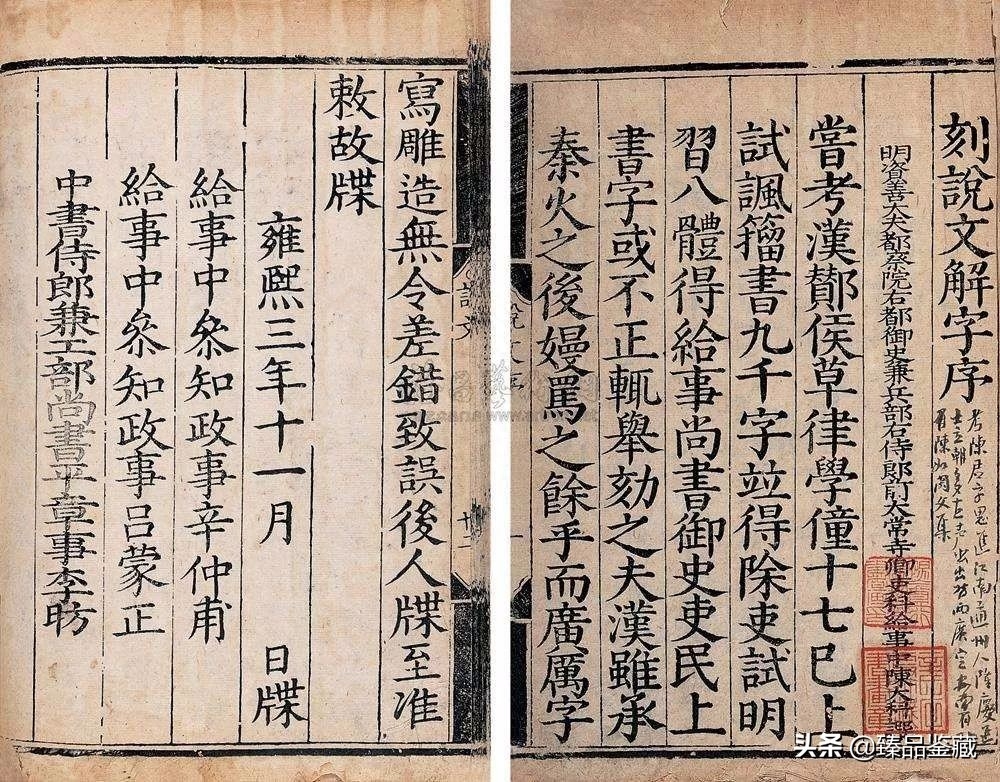 刻說文解字序
明資善大夫都察院右都御史兼兵部右侍郎前太常寺卿吏科給事中陳大科譔
嘗考漢酇侯草律學僮十七巳上
試諷籀書九千字竝得除吏試明
習八體得給事尚書御史吏民上
書字或不正輒舉劾之夫漢雖承
秦火之後嫚罵之餘乎而廣厲字
寫雕造無令差錯致誤後人牒至准
敕故牒
雍熙三年十一月 日牒
給事中叅知政事辛仲甫
給事中叅知政事吕蒙正
中書侍郎兼工部尚書平章事李昉
說文
十二
頭条 @臻品鉴藏